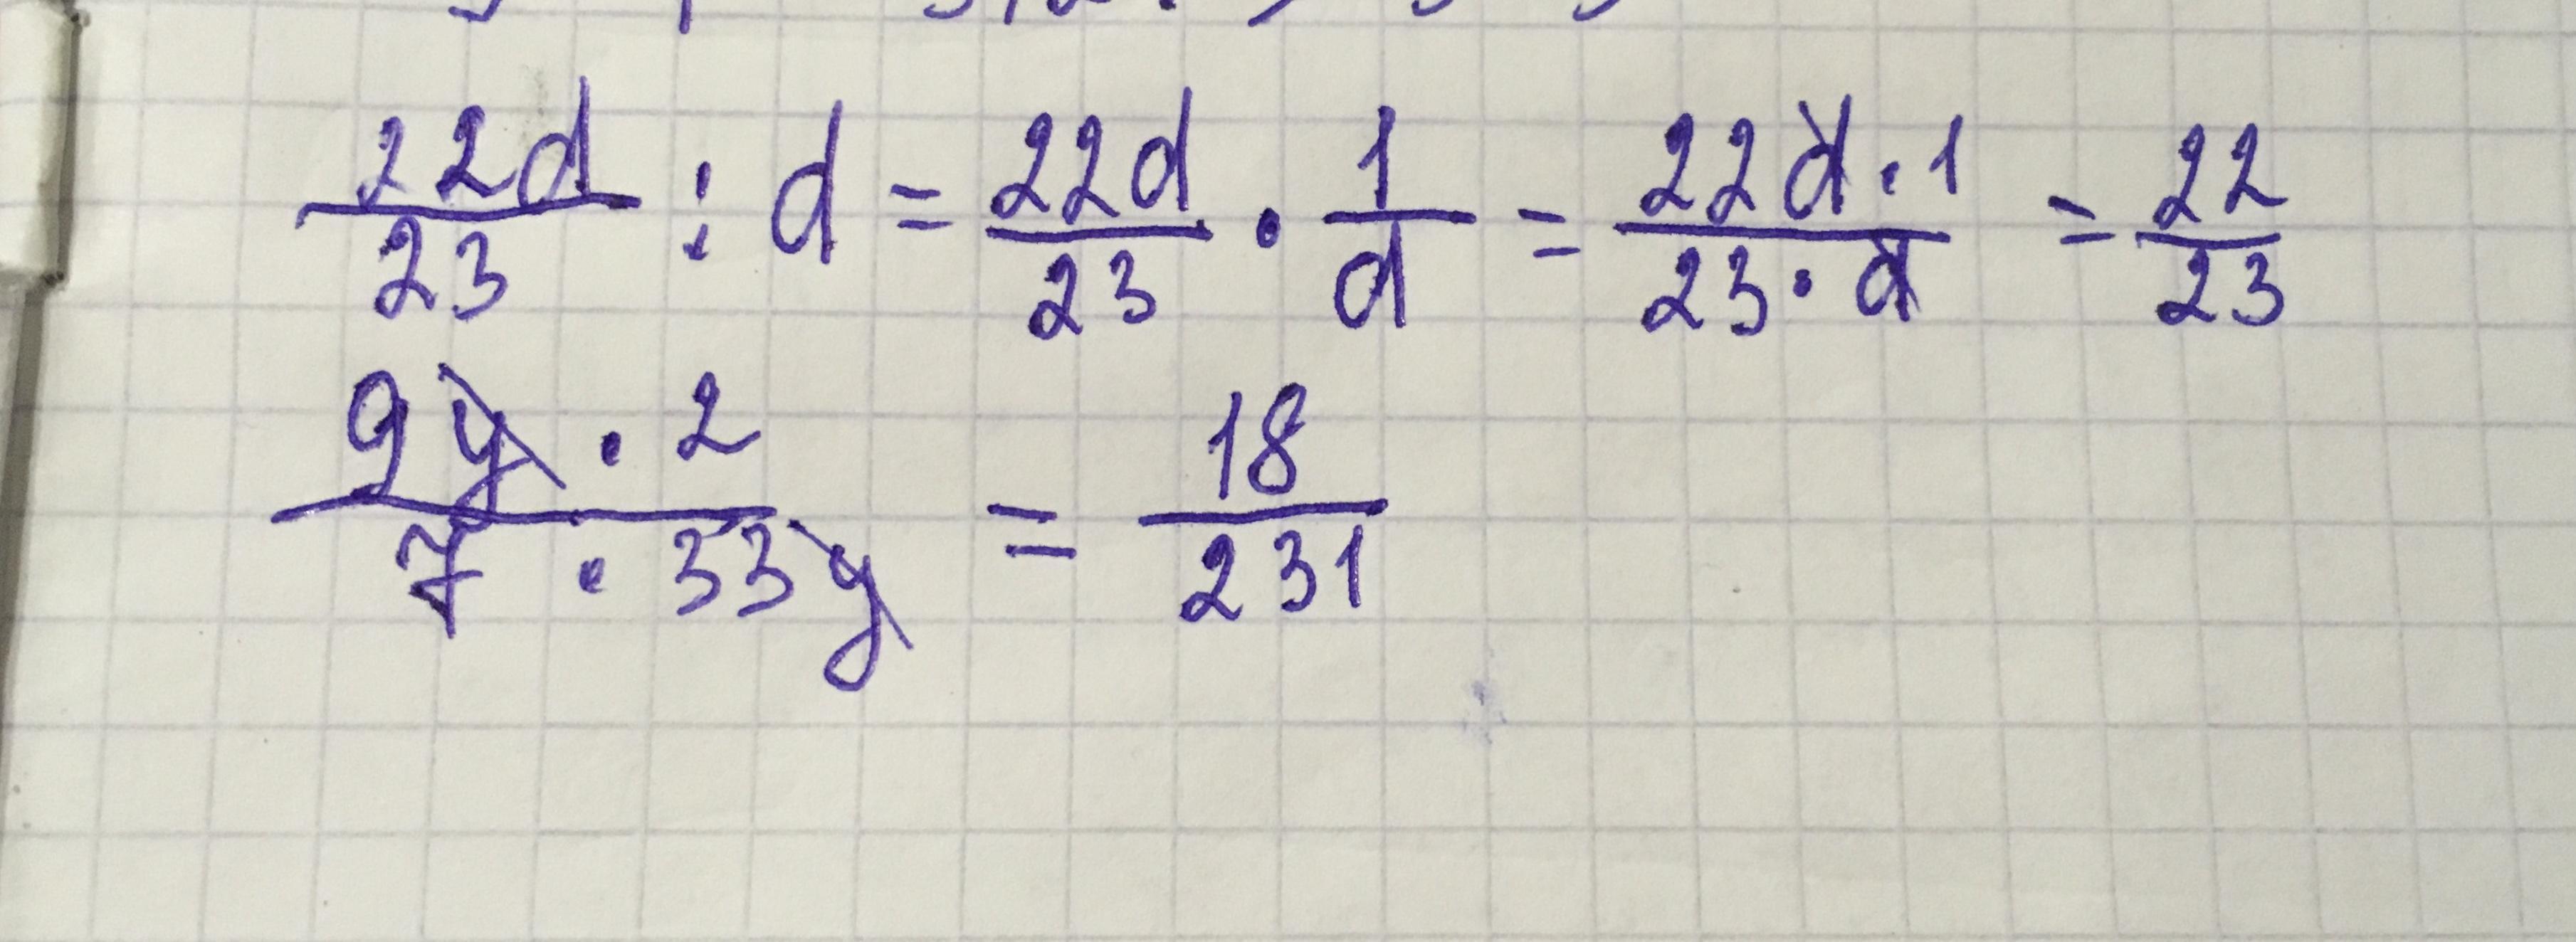 22d/23 : d = 22d/23 · 1/d = 22d·1/23·d = 22/23
9y · 2/7 · 33y = 18/231